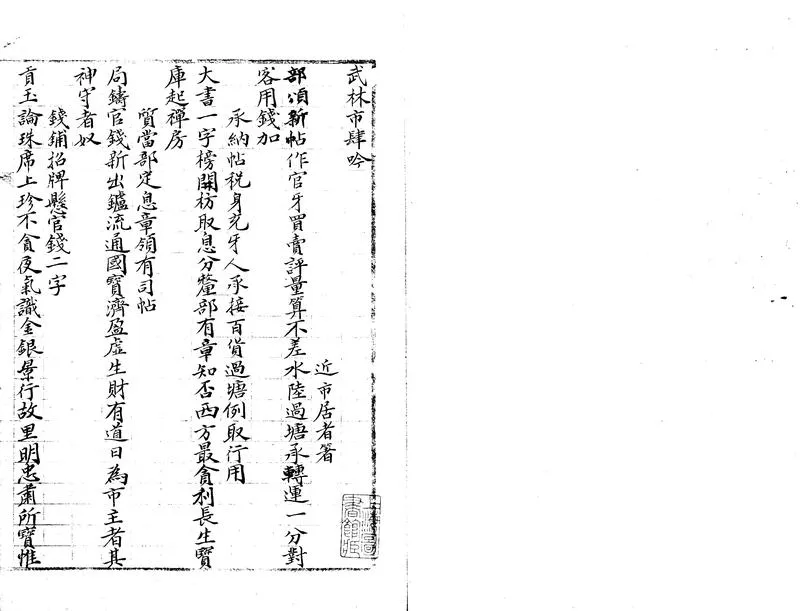 武林市肆吟
近市居者箸
部頒新帖作官牙買賣評量算不差水陸過塘承轉運一分對
客用錢加
承納帖稅身充牙人承接百貨過塘例取行用
大書一字榜開枋取息分釐部有章知否西方最貪利長生寶
庫起禪房
質當部定息章領有司帖
局鑄官錢新出鑪流通國寶濟盈虛生財有道日為市主者其
神守者奴
錢鋪招牌懸官錢二字
貢玉論珠席上珍不貪夜氣識金銀景行故里明忠肅所寶惟